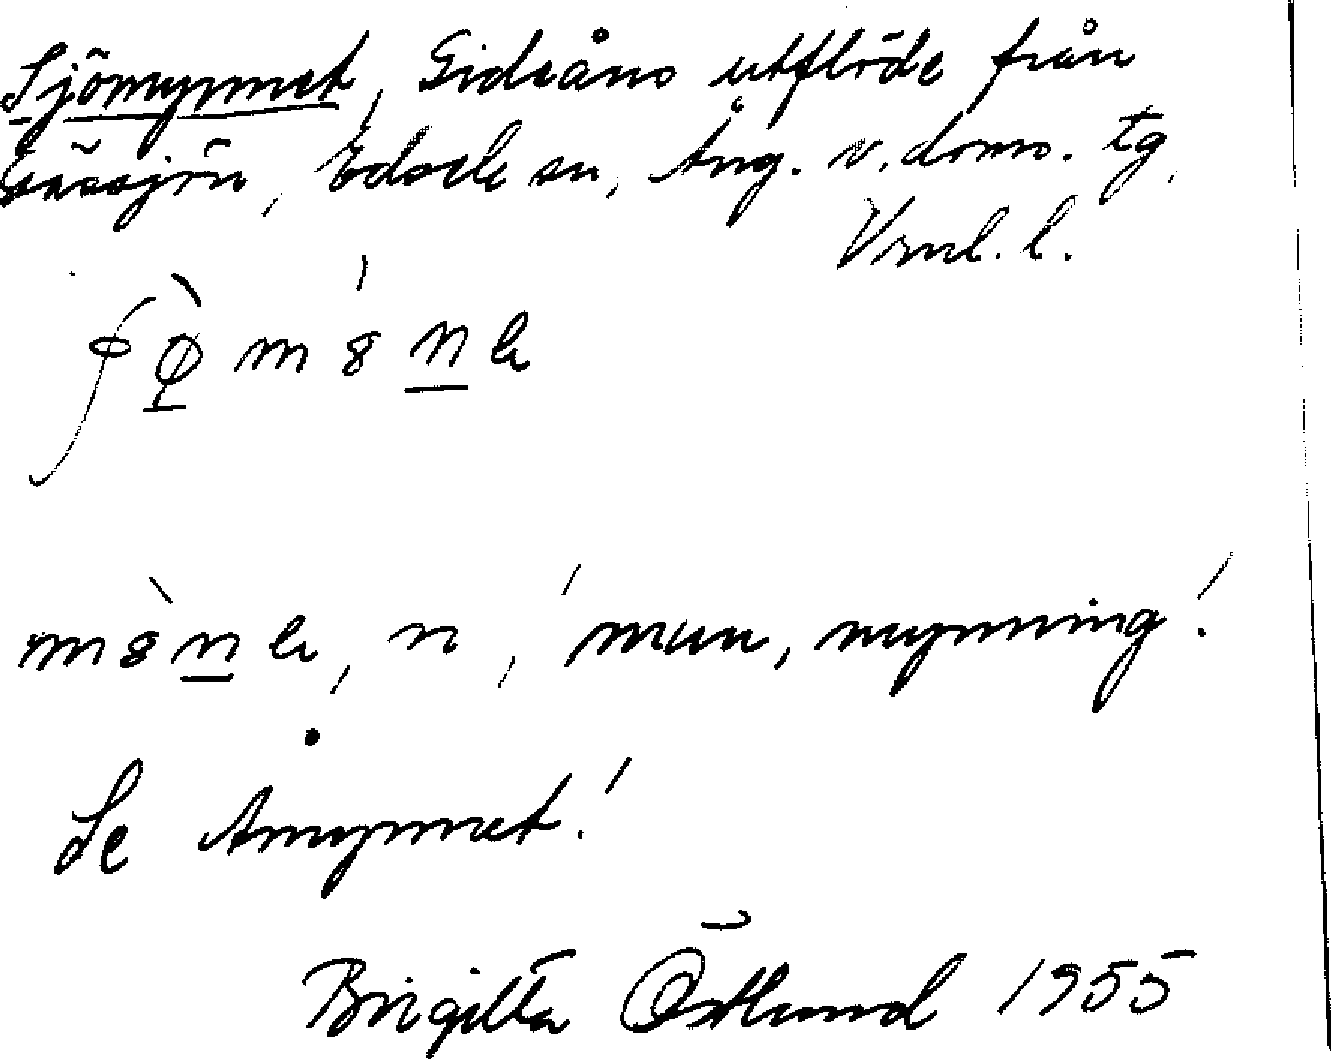 Sjömynnet, Gideåns utflöde från
Edsele sn, Ång. v. doms. tg,
Vml. l.
n, 'mun, mynning'.
Se Åmynnet!
Birgitta Östlund 1955